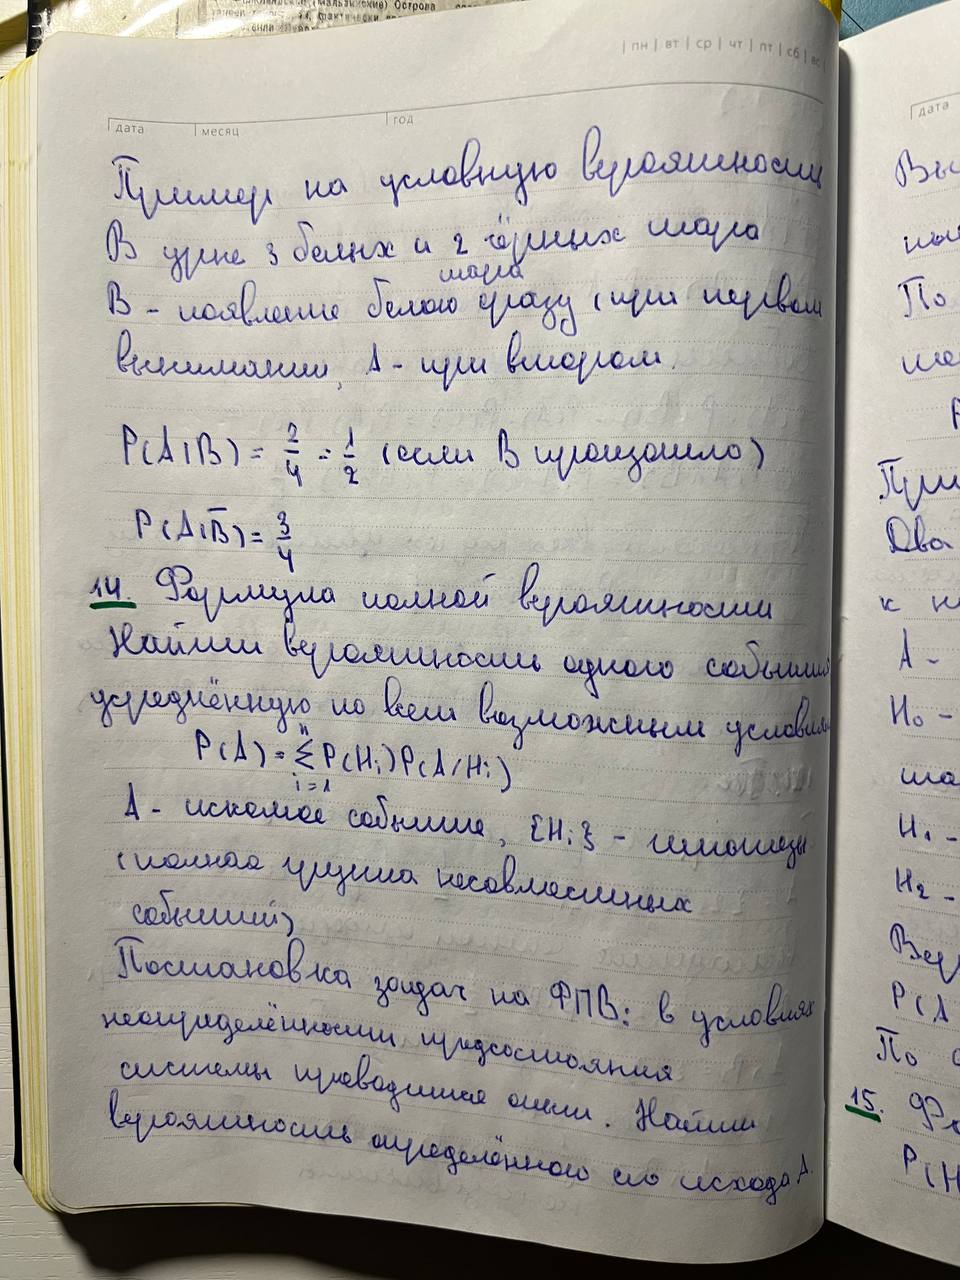 (мальзийские) Острова
пн | вт | ср | чт | пт | сб | вс
дата месяц год
Пример на условную вероятность
В урне 3 белых и 2 чёрных шара
шара
В - появление белого сразу (при первом
вынимании, А - при втором.
P(A|B) = 2/4 = 1/2 (если В произошло)
P(A|B̅) = 3/4
14. Формула полной вероятности
Найти вероятность одного события
усреднённую по всем возможным условиям
P(A) = n Σ i=1 P(Hi)P(A/Hi)
А - искомое событие, {Hi} - гипотезы
(полная группа несовместных
событий)
Постановка задач на ФПВ: в условиях
неопределённости предсостояния
системы проводится опыт. Найти
вероятность определённого его исхода А.
дата
Вы
По
P
При
Два
к н
А -
H₀ -
ша
H₁ -
H₂ -
Вер
P(A
По
15. Фо
P(H